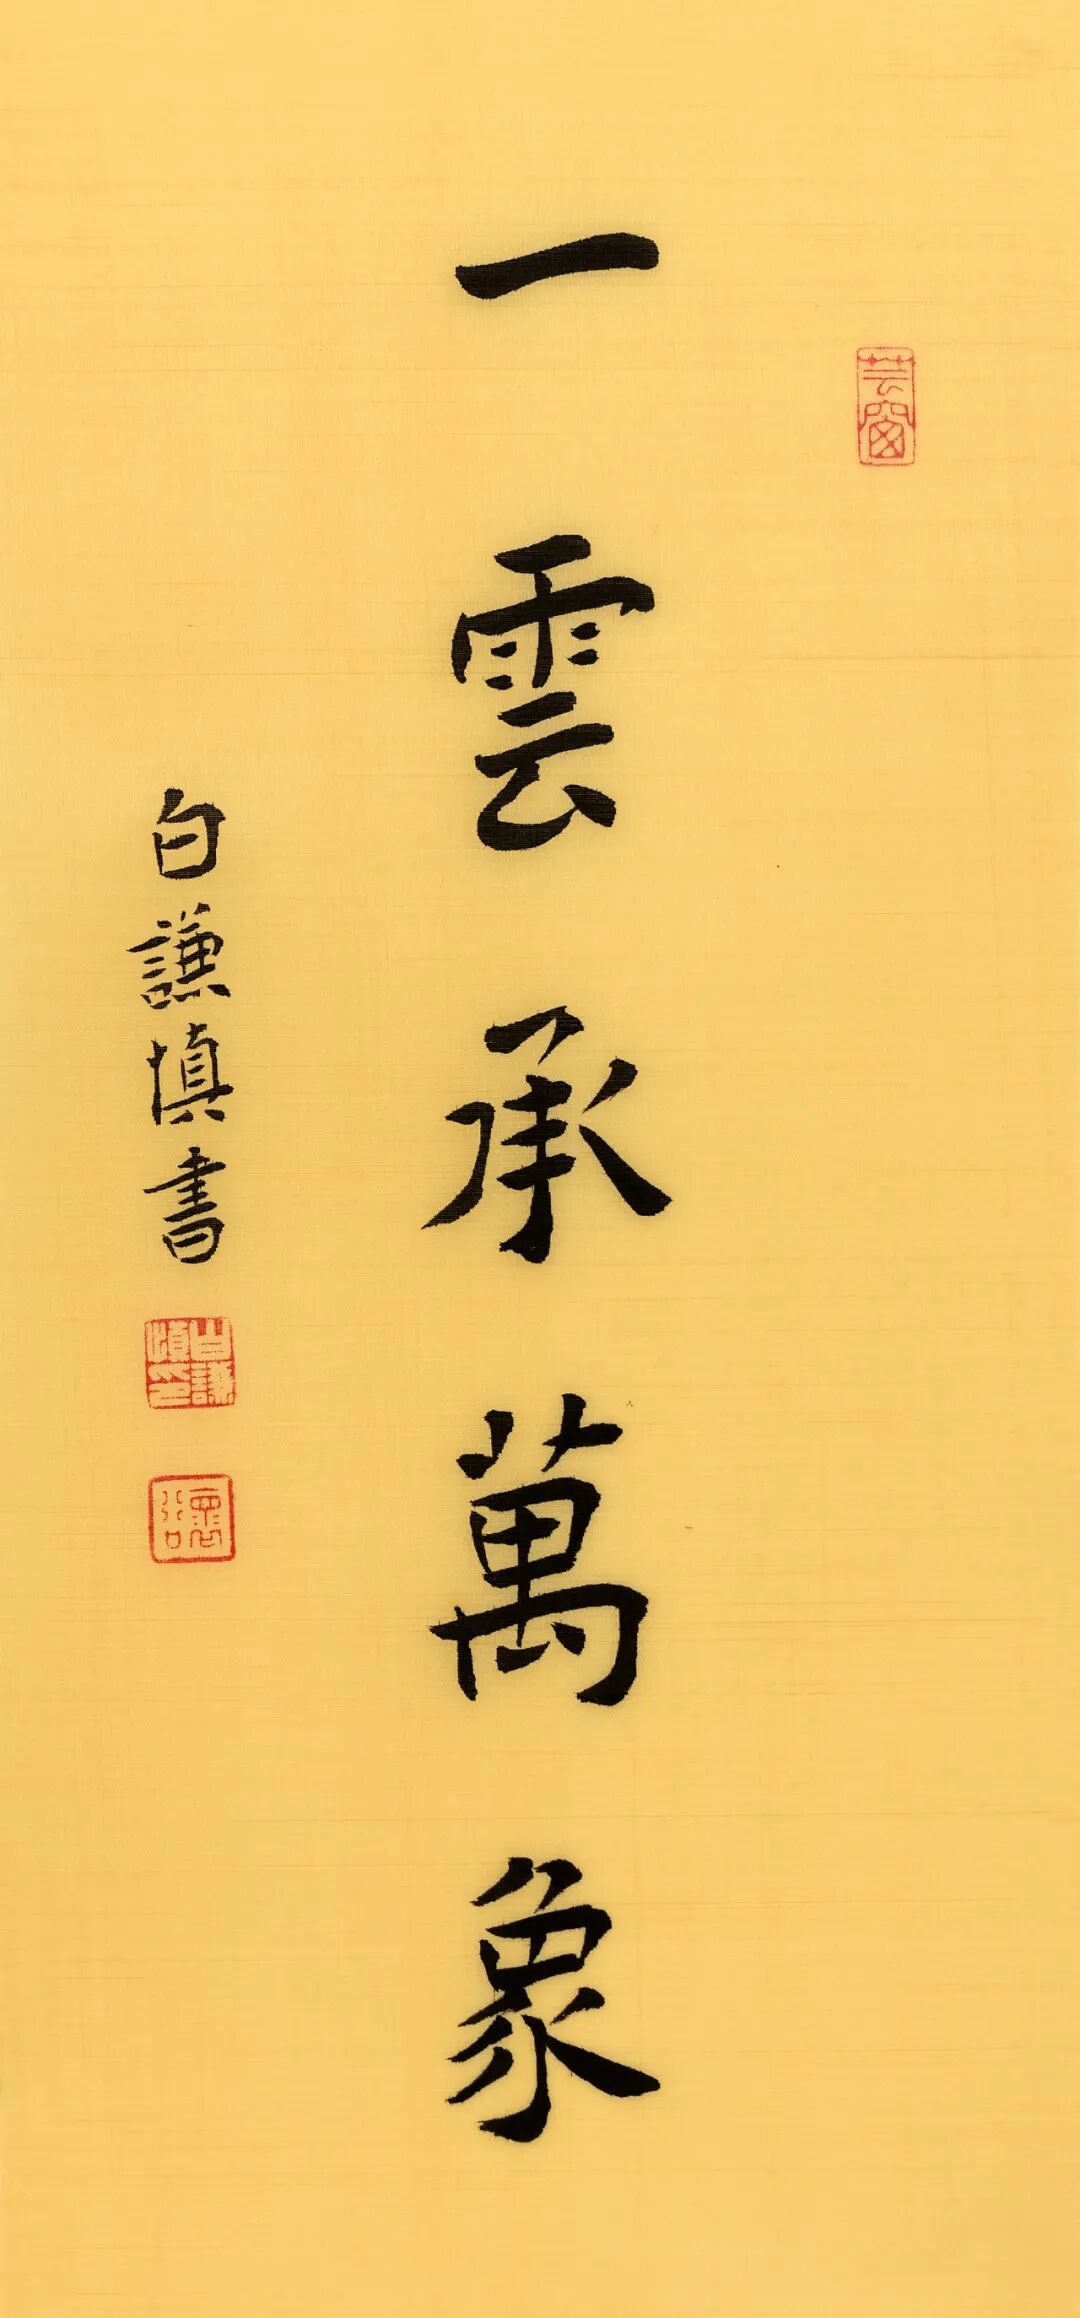 芸窗
一雲承萬象
白謙慎書
白謙慎印